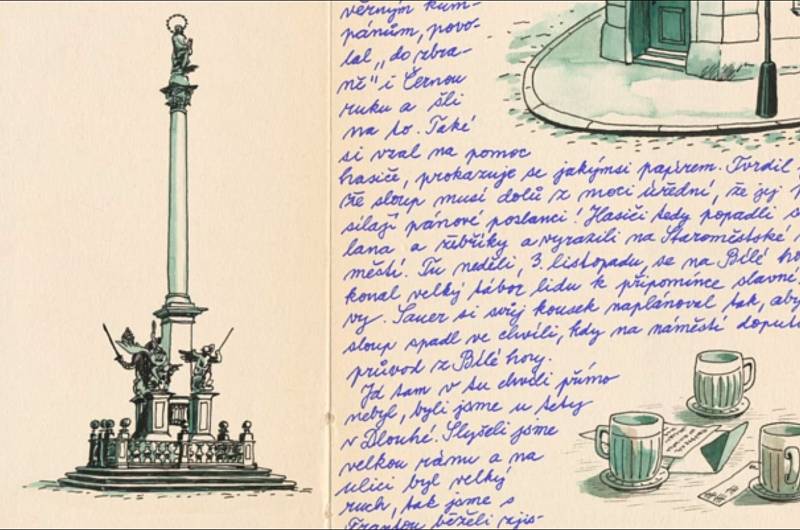 věrným kum-
pánům, povo-
lal „do zbra-
ně" i Černou
ruku a šli
na to. Také
si vzal na pomoc
hasiče, prokazuje se jakýmsi papírem. Tvrdil
že sloup musí dolů z moci úřední, že jej
sílají pánové poslanci! Hasiči tedy popadli
lana a žebříky a vyrazili na Staroměstské
městí. Tu neděli, 3. listopadu, se na Bílé
konal velký tábor lidu k připomínce slavné
vy. Sauer si svůj kousek naplánoval tak, aby
sloup spadl ve chvíli, kdy na náměstí doputo
průvod z Bílé hory.
Já tam v tu chvíli přímo
nebyl, byli jsme u tety
v Dlouhé. Slyšeli jsme
velkou ránu a na
ulici byl velký
ruch, tak jsme s
Frantou běželi zjis-